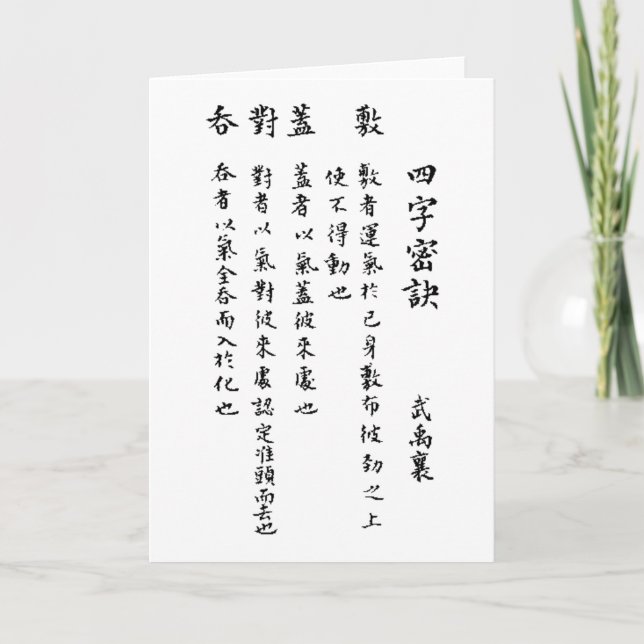 四字密訣
武禹襄
敷
敷者運氣於己身敷布彼勁之上
使不得動也
蓋
蓋者以氣蓋彼來處也
對
對者以氣對彼來處認定准頭而去也
吞
吞者以氣全吞而入於化也